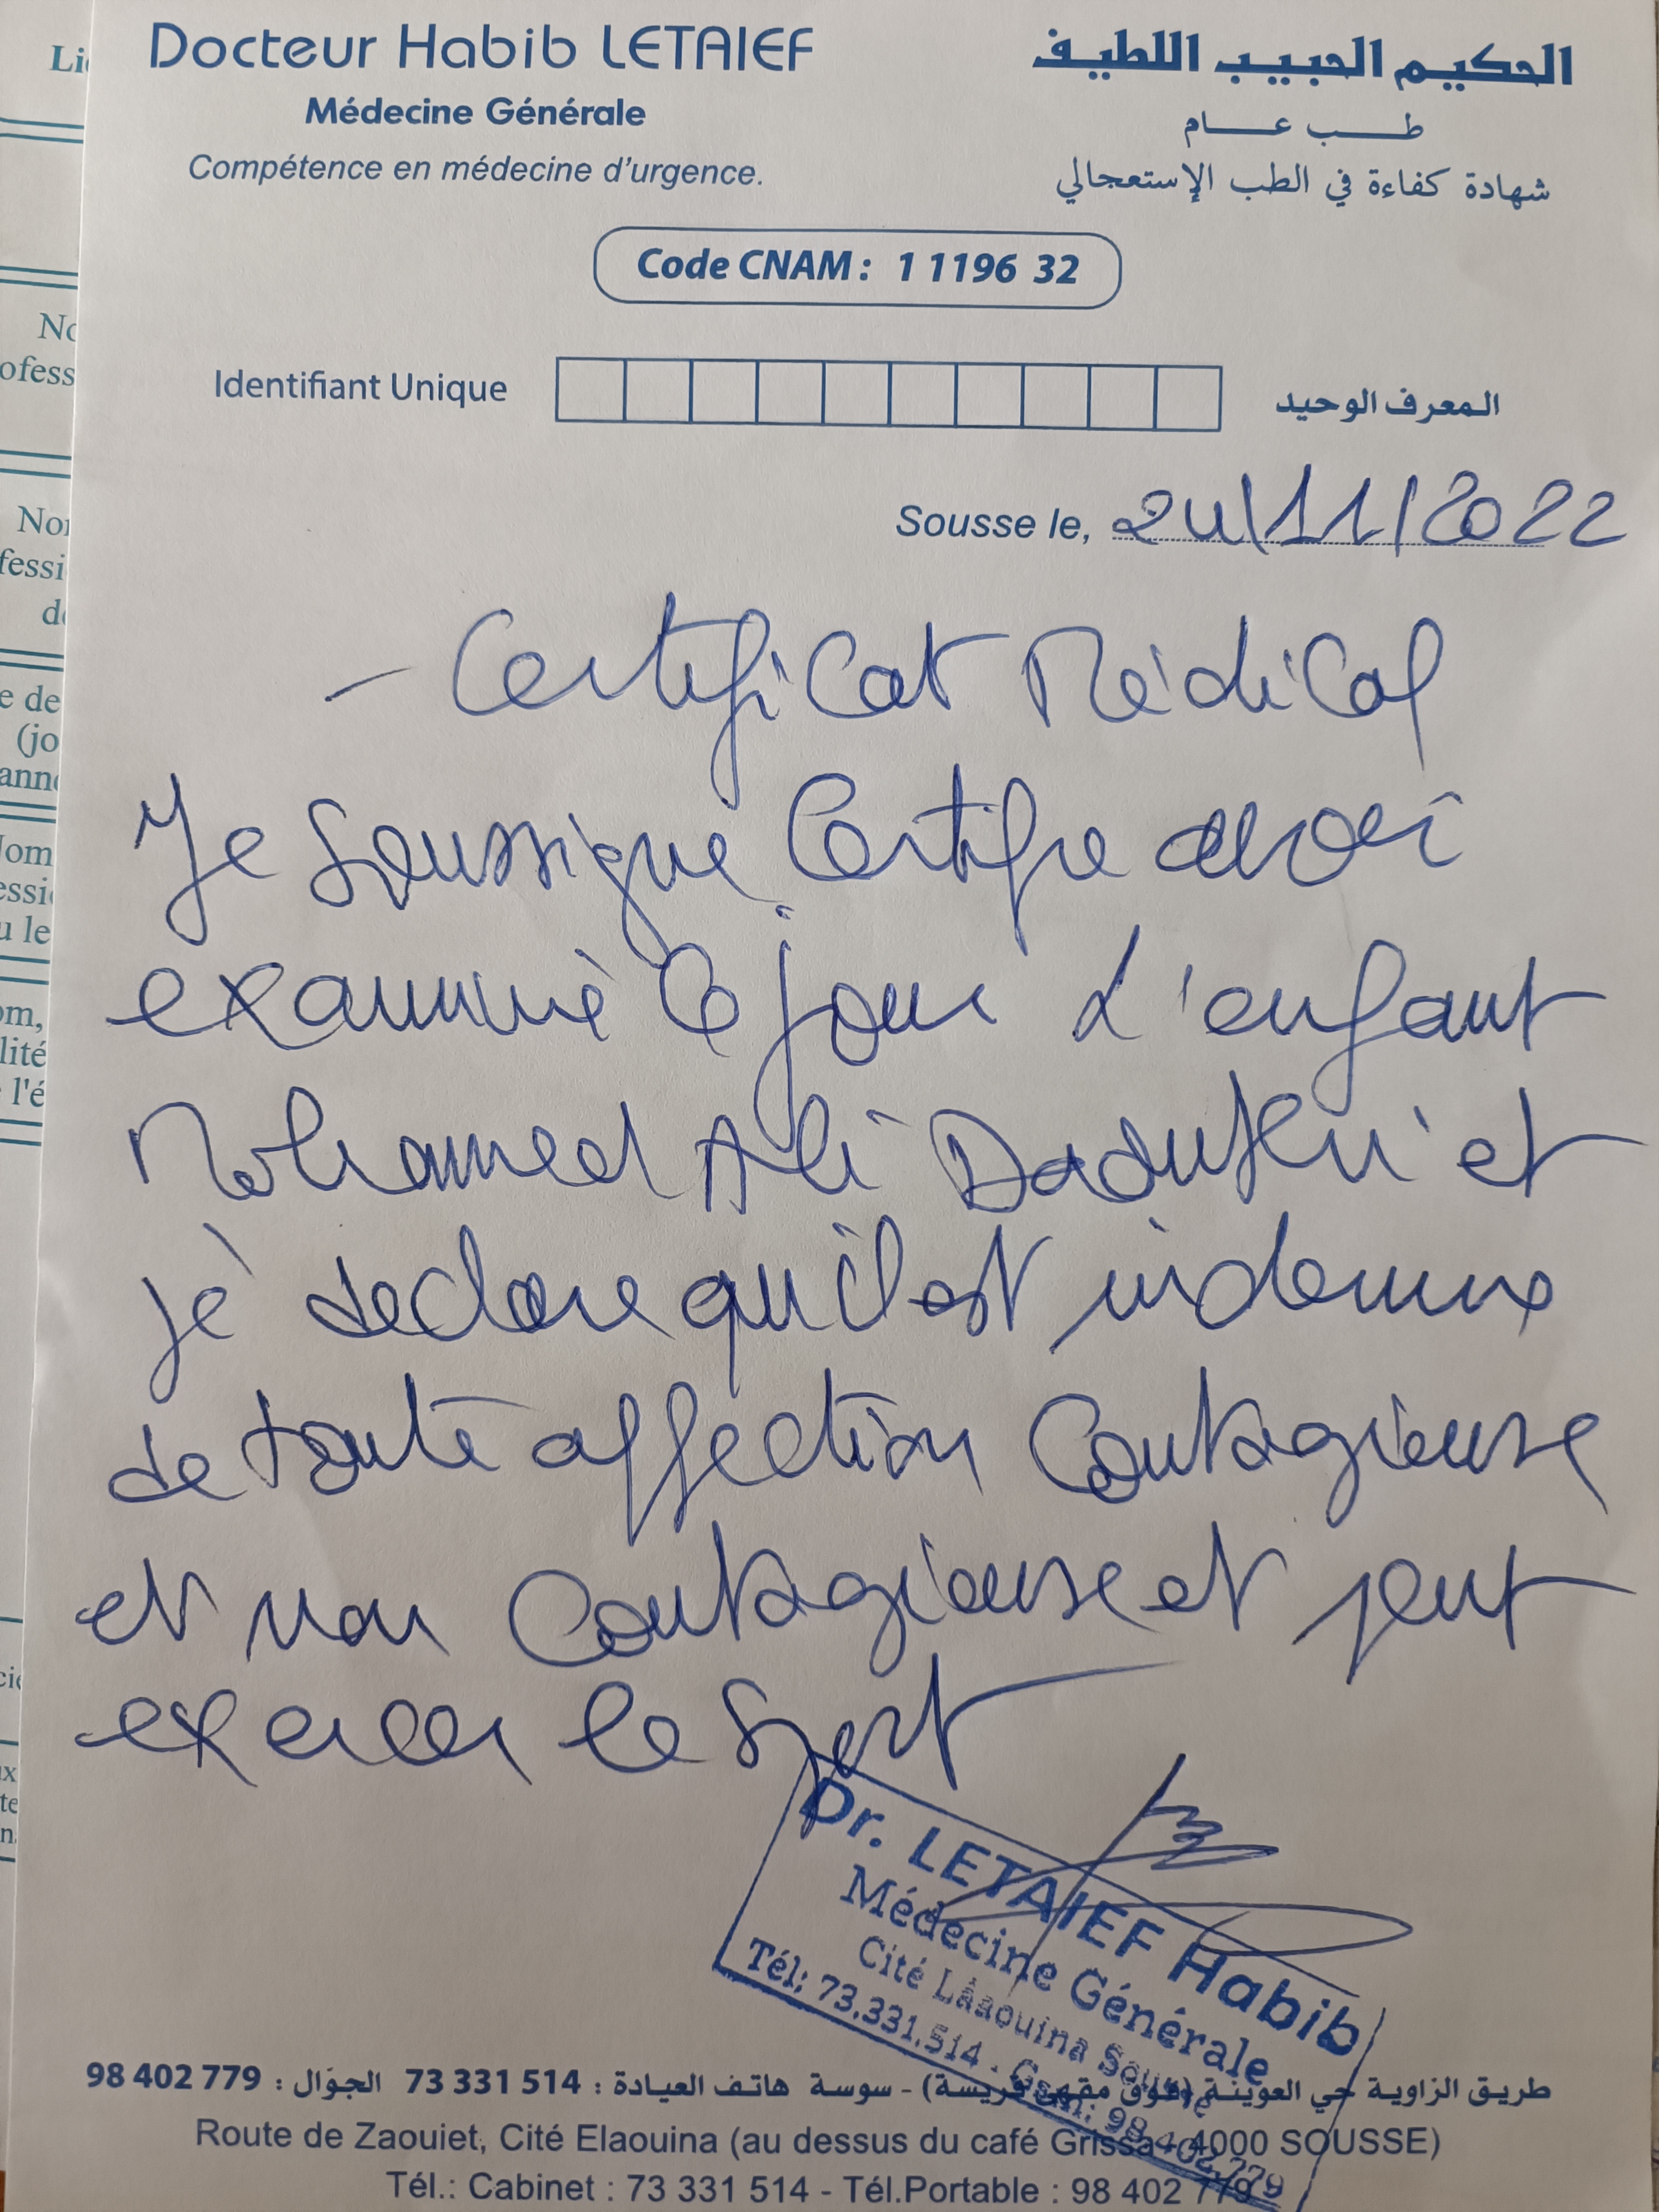 Docteur Habib LETAIEF
Médecine Générale
Compétence en médecine d'urgence.
الحكيم الحبيب اللطيف
طب عام
شهادة كفاءة في الطب الإستعجالي
Code CNAM : 1 1196 32
Identifiant Unique
المعرف الوحيد
Sousse le, 24/11/2022
- Certificat Médical
Je soussigné Certifie avoir
examiné ce jour L'enfant
Mohamed Ali et
je declare qu'il est indemne
de toute affection Contagieuse
et non Contagieuse et peut
exercer le Sport
Dr. LETAIEF Habib
Médecine Générale
Cité Laaouina Sousse
Tél: 73.331.514 - Gsm: 98.402.779
طريق الزاوية حي العوينة (فوق مقهى قريسة) - سوسة هاتف العيادة : 514 331 73 الجوّال : 779 402 98
Route de Zaouiet, Cité Elaouina (au dessus du café Grissa - 4000 SOUSSE)
Tél.: Cabinet : 73 331 514 - Tél.Portable : 98 402 779
Li
No
ofess
Nor
fessi
de
e de
(jo
anné
Nom
essi
u le
om,
lité
l'é